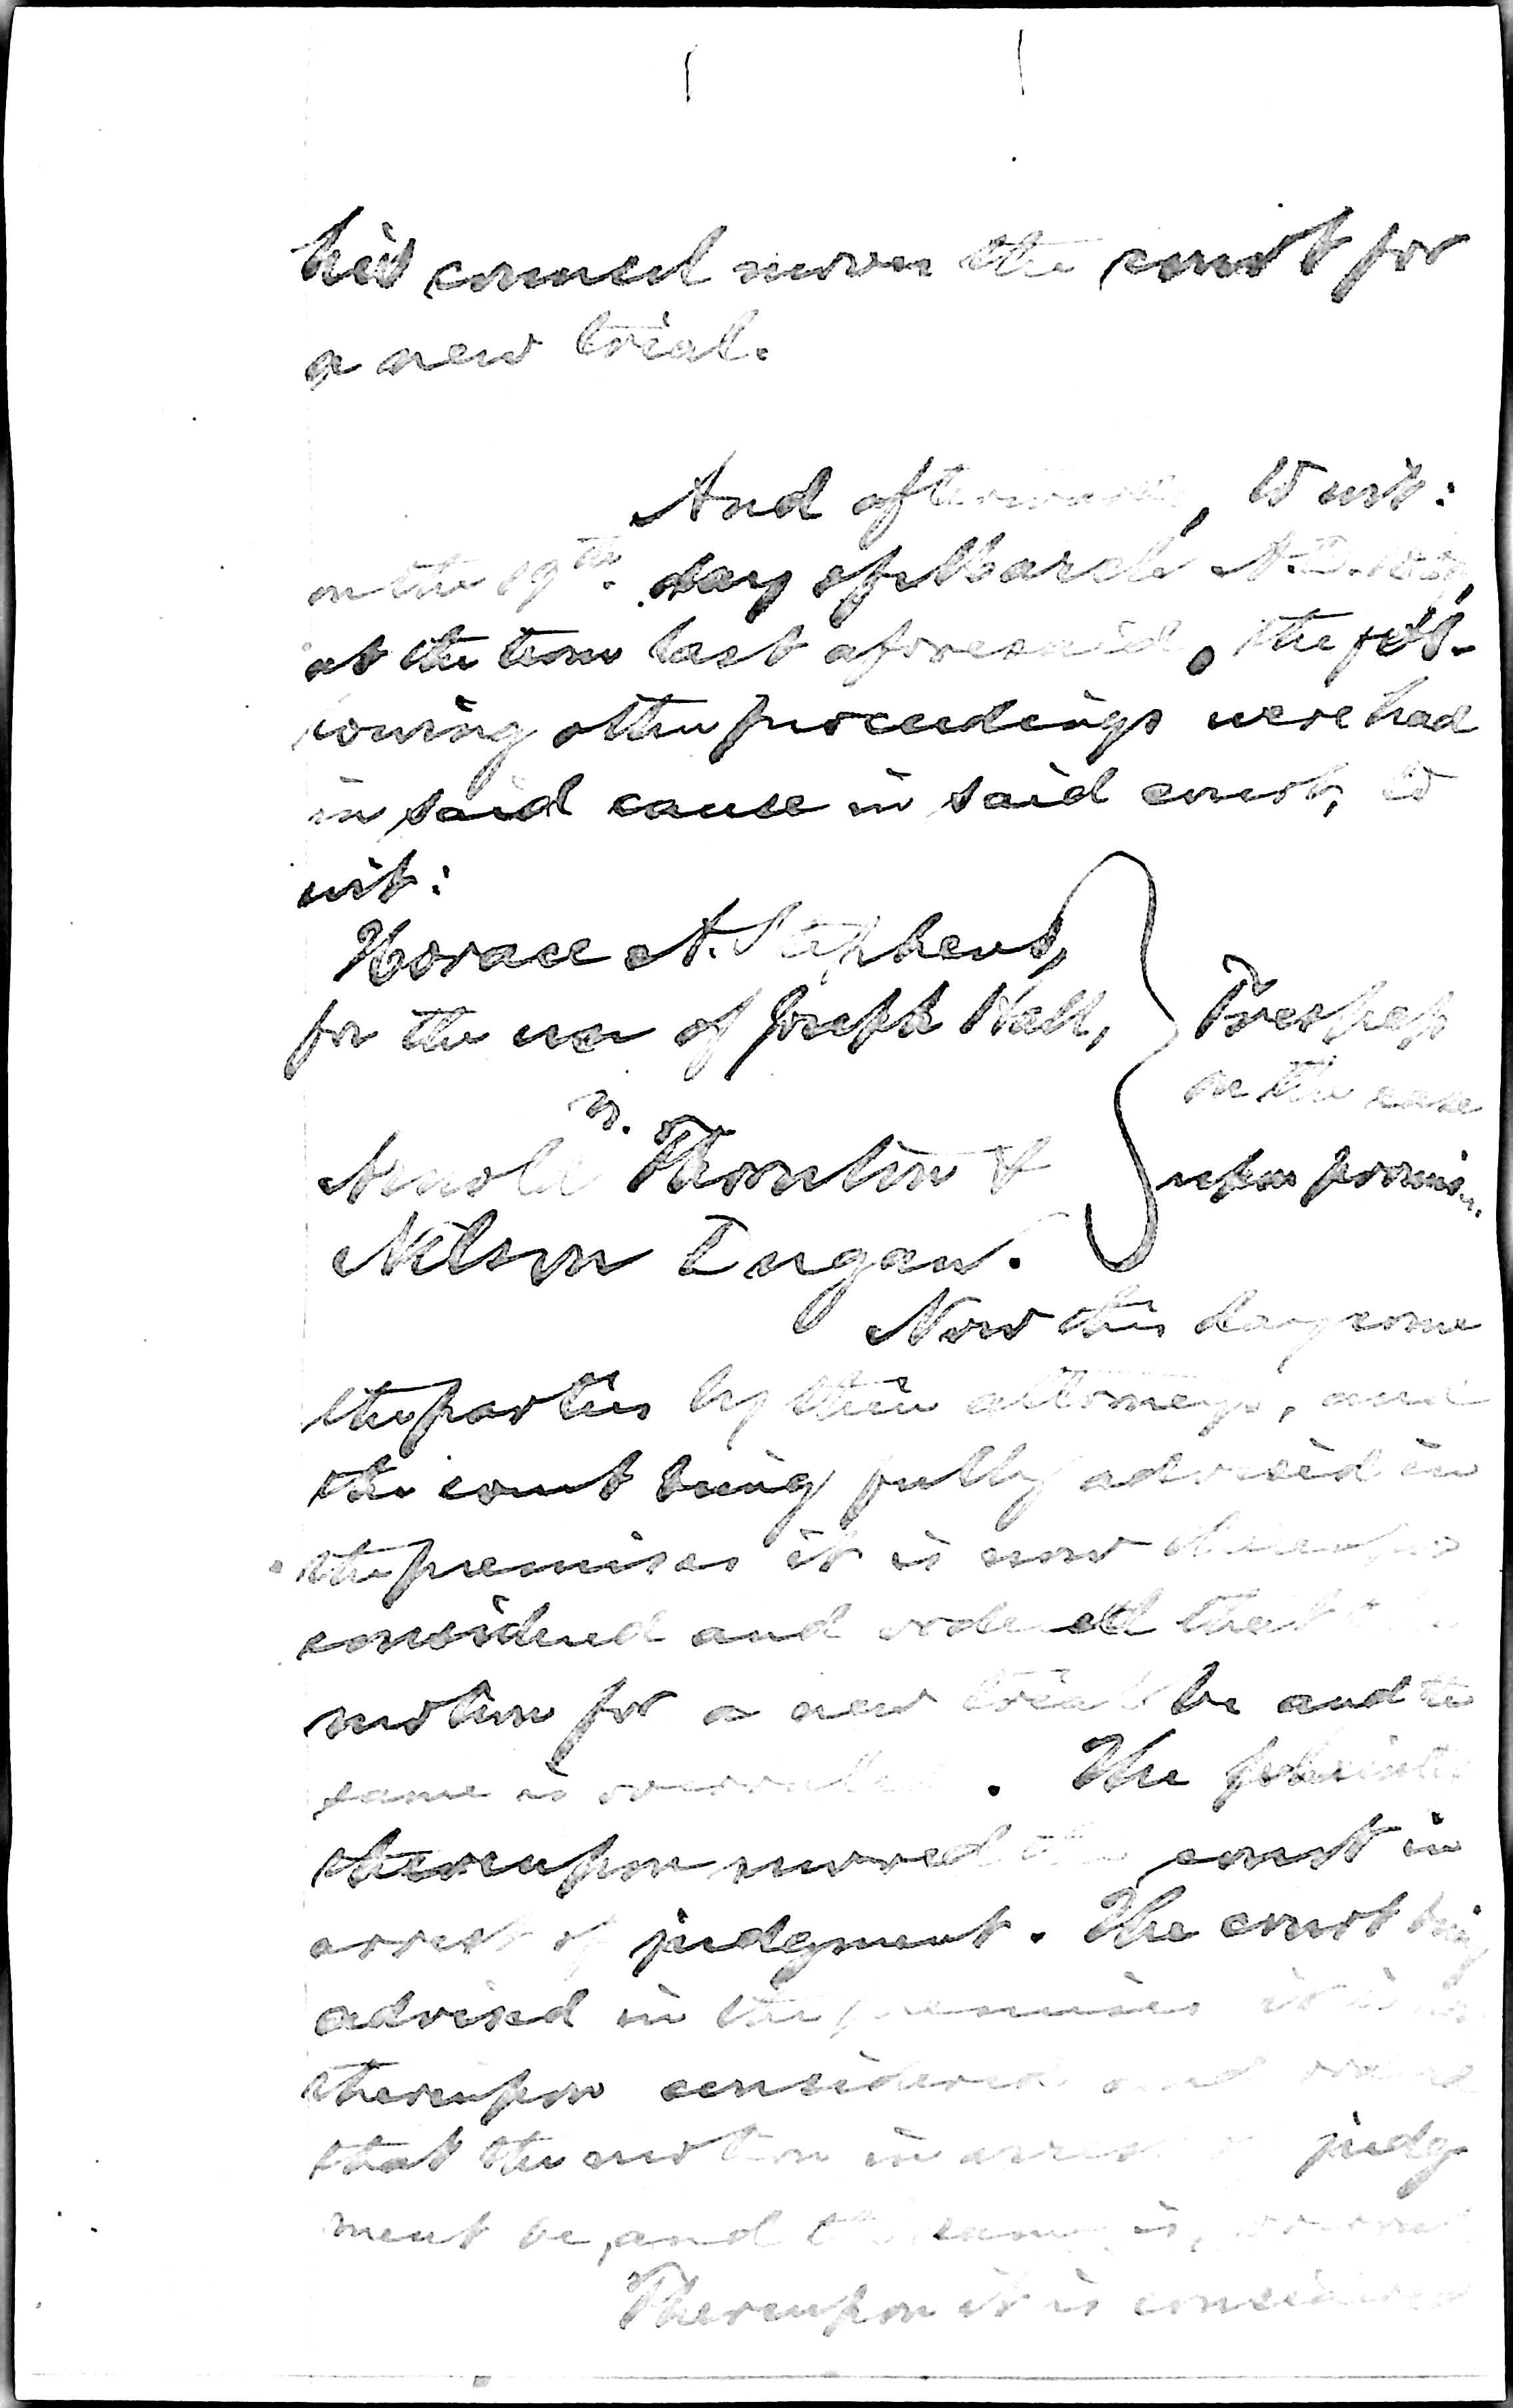 his council moves the court for
a new trial.
And afterwards, to wit:
on the 19th. day of March A.D.
at the term last aforesaid, the fol-
lowing other proceedings were had
in said cause in said court, to
wit:
Horace A. Stephens,
for the use of Joseph Hall,
vs.
Arnold Thornton &
Nelson Dugan.
Trespass
on the case
upon promis.
Now this day come
the parties by their attorneys, and
the court being fully advised in
the premises it is now thereupon
considered and ordered that the
motion for a new trial be and the
same is overruled. The plaintiff
thereupon moved the court in
arrest of judgment. The court being
advised in the premises it is
thereupon considered and ordered
that the motion in arrest of judg
ment be, and the same is,
Thereupon it is considered